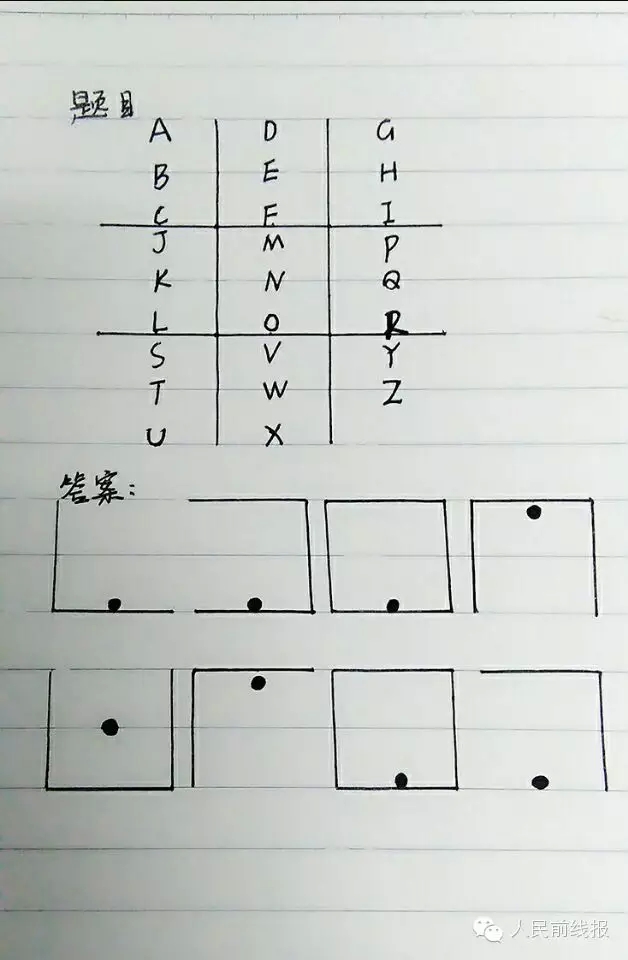 题目
A D G
B E H
C F I
J M P
K N Q
L O R
S V Y
T W Z
U X
答案:
人民前线报